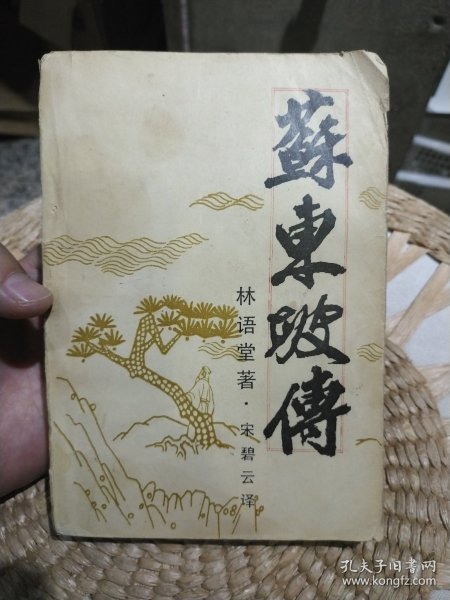 蘇東坡傳
林语堂著·宋碧云译
孔夫子旧书网
www.kongfz.com